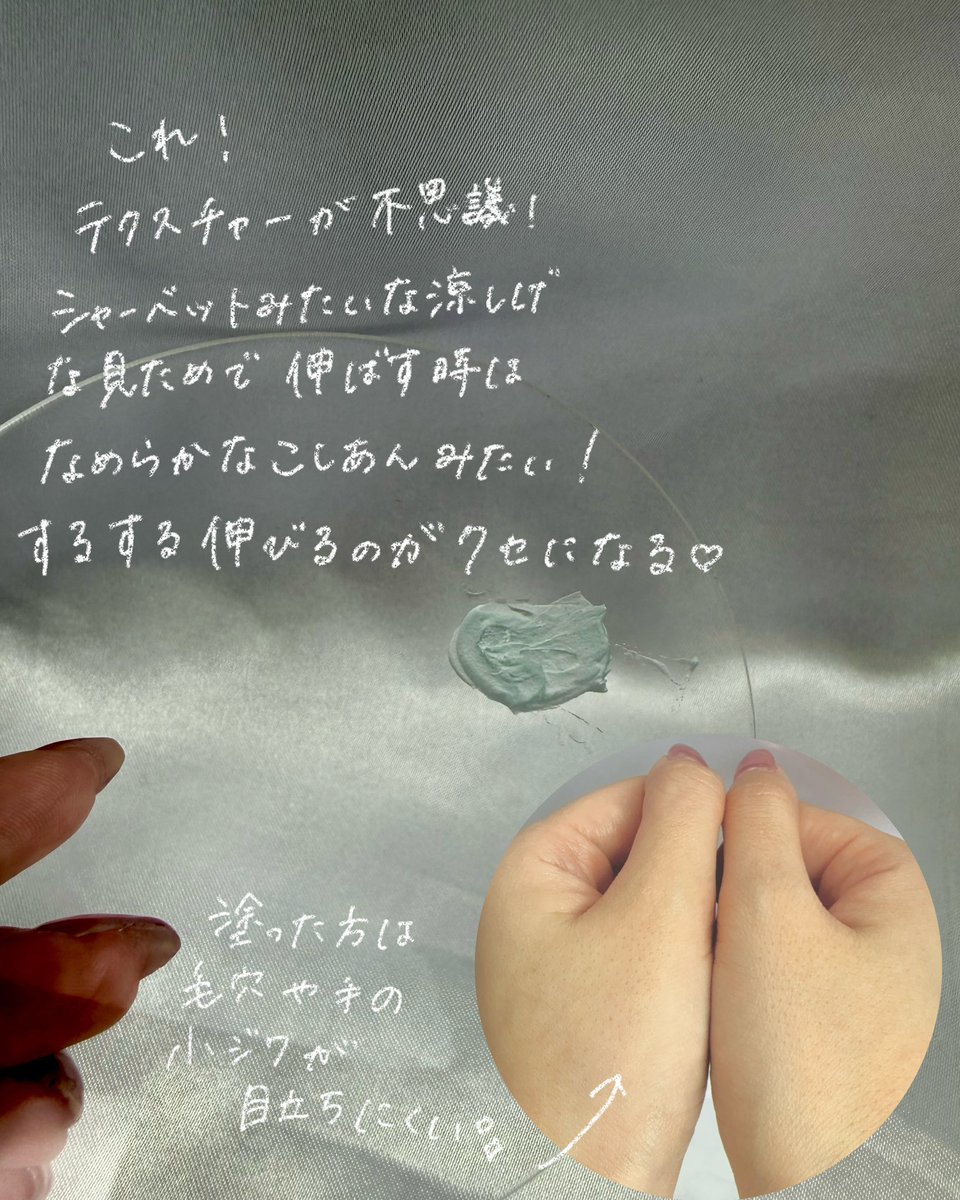 これ!
テクスチャーが不思議!
シャーベットみたいな涼しげ
な見ためで伸ばす時は
なめらかなこしあんみたい!
するする伸びるのがクセになる♡
塗った方は
毛穴や手の
小ジワが
目立ちにくい。